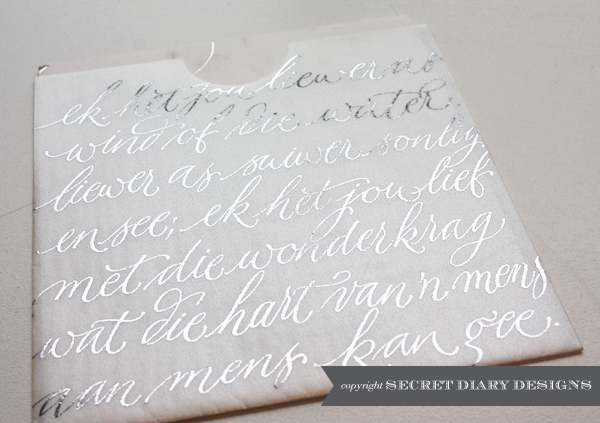 ek het jou liewer as
wind of die winter,
liewer as suiwer sonlig
en see; ek het jou lief
met die wonderkrag
wat die hart van 'n mens
aan mens kan gee.
copyright SECRET DIARY DESIGNS